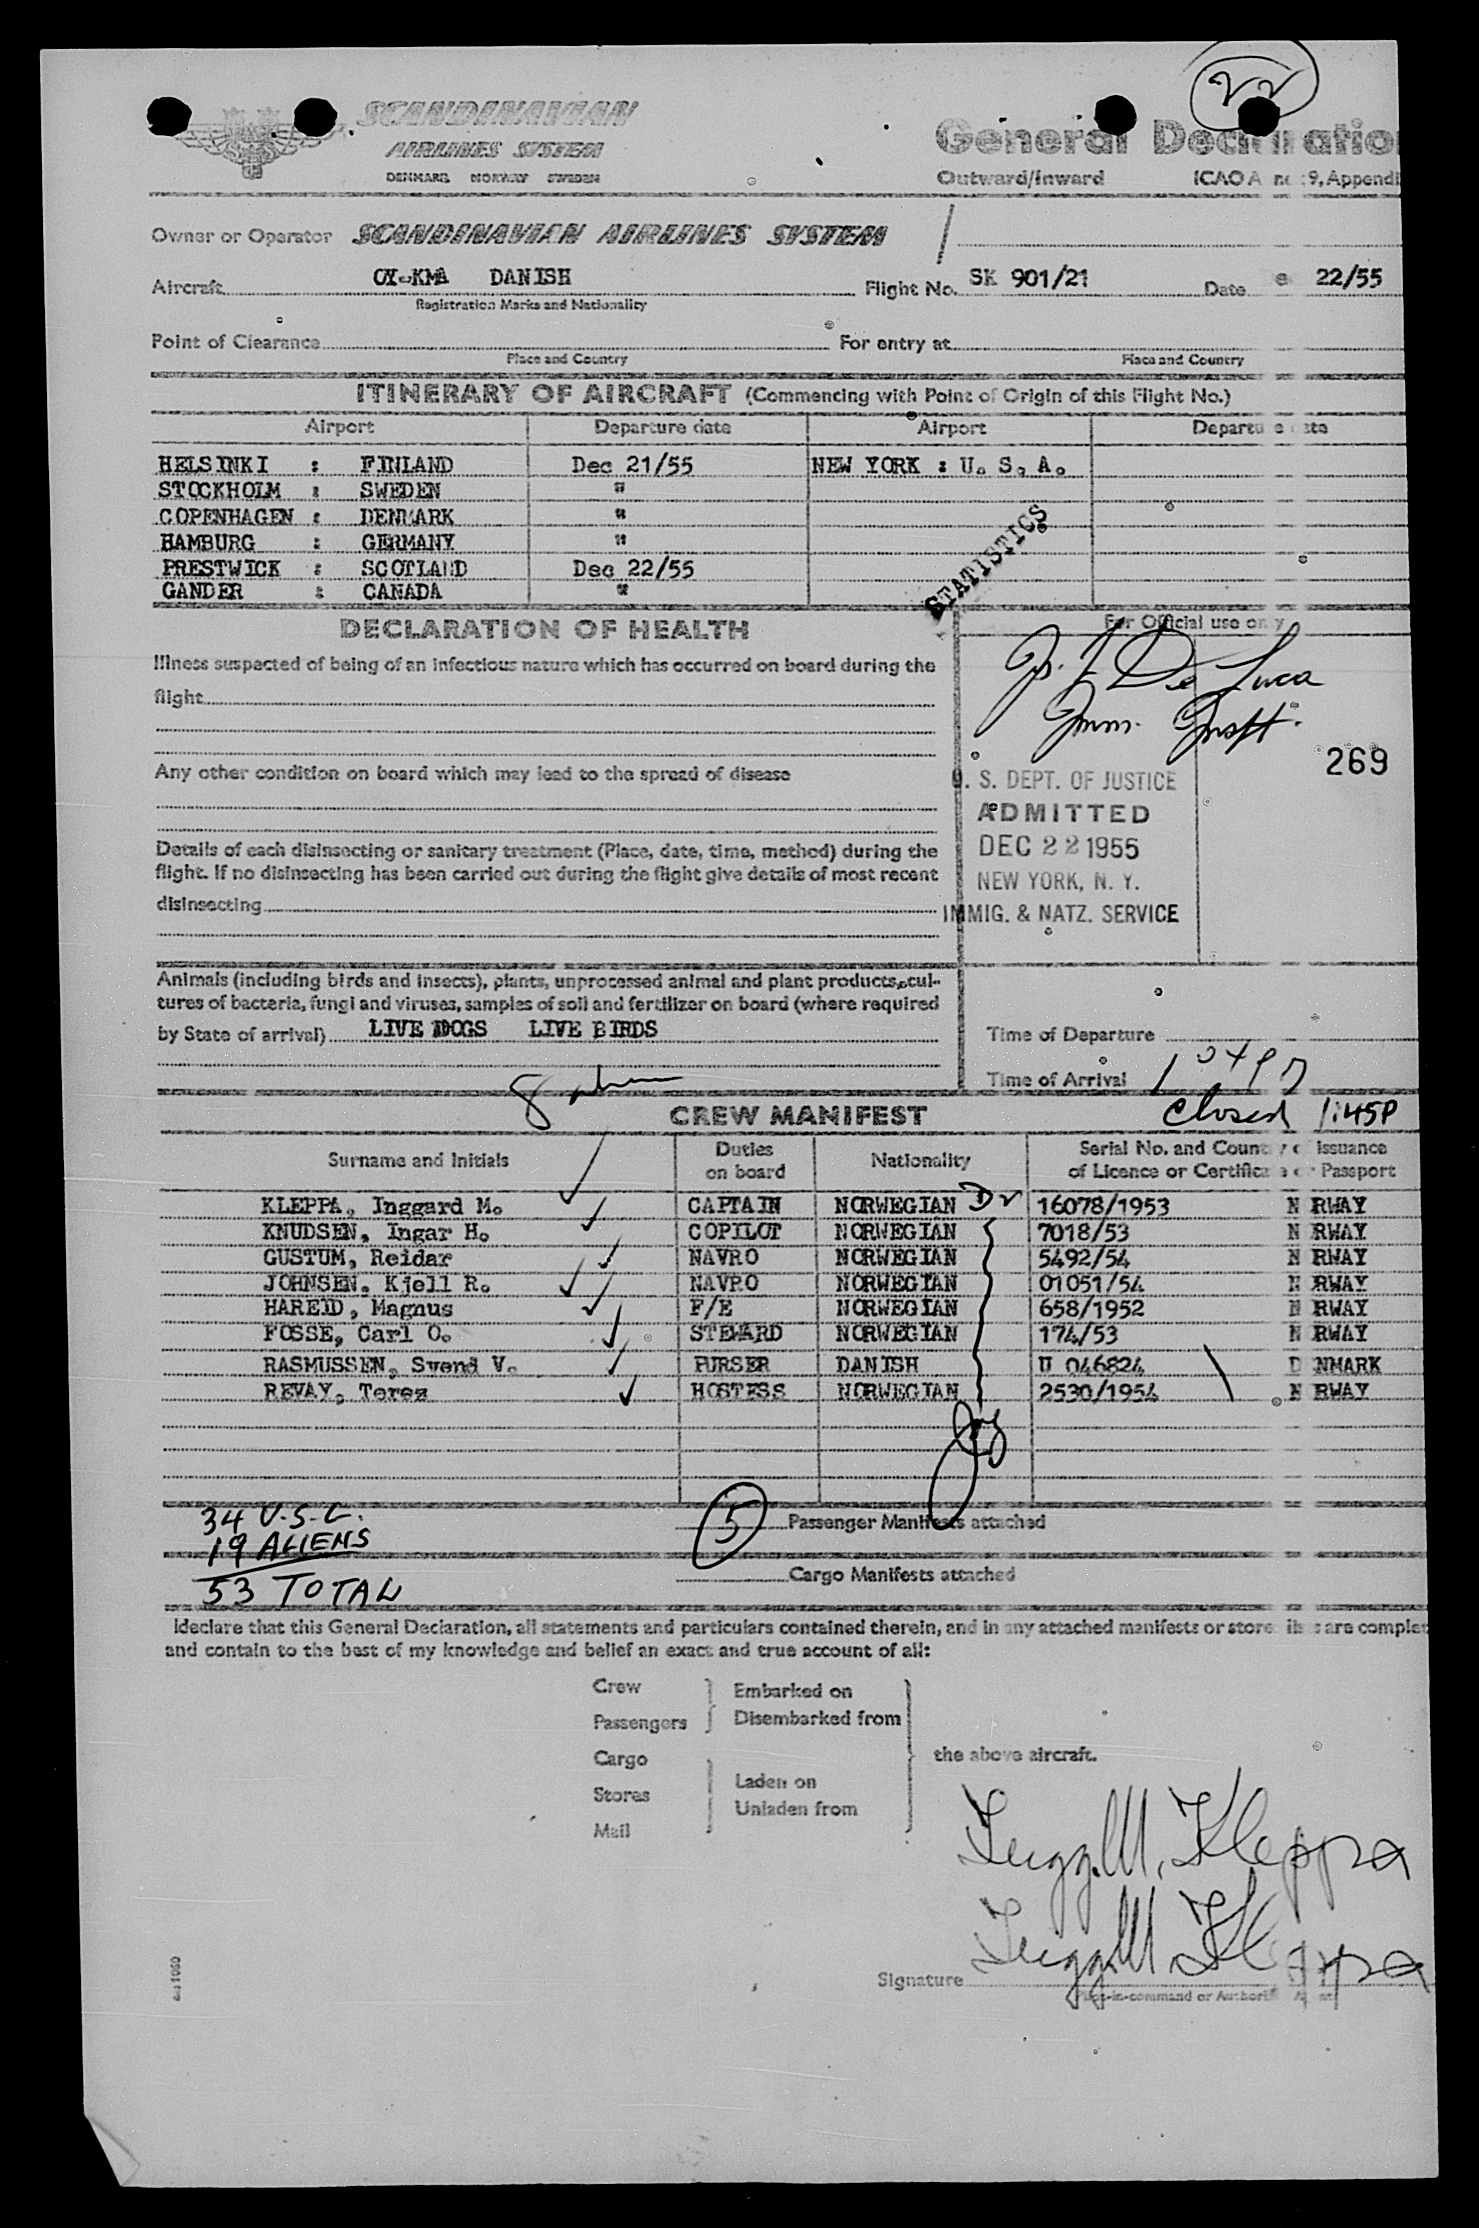 22
SCANDINAVIAN
AIRLINES SYSTEM
DENMARK NORWAY SWEDEN
General Declaratio
Outward/Inward ICAO A ne 9, Appendi
Owner or Operator SCANDINAVIAN AIRLINES SYSTEM
Aircraft OY-KMA DANISH Flight No. SK 901/21 Date 22/55
Registration Marks and Nationality
Point of Clearance For entry at
Place and Country Place and Country
ITINERARY OF AIRCRAFT (Commencing with Point of Origin of this Flight No.)
Airport Departure date Airport Departu e ate
HELSINKI : FINLAND Dec 21/55 NEW YORK : U. S. A.
STOCKHOLM : SWEDEN "
COPENHAGEN : DENMARK "
HAMBURG : GERMANY "
PRESTWICK : SCOTLAND Dec 22/55
GANDER : CANADA "
STATISTICS
DECLARATION OF HEALTH
For Official use on y
Illness suspected of being of an infectious nature which has occurred on board during the
flight
De Luca
Imm. Inspt.
269
Any other condition on board which may lead to the spread of disease
U. S. DEPT. OF JUSTICE
ADMITTED
DEC 22 1955
NEW YORK, N. Y.
IMMIG. & NATZ. SERVICE
Details of each disinsecting or sanitary treatment (Place, date, time, method) during the
flight. If no disinsecting has been carried out during the flight give details of most recent
disinsecting
Animals (including birds and insects), plants, unprocessed animal and plant products, cul-
tures of bacteria, fungi and viruses, samples of soil and fertilizer on board (where required
by State of arrival) LIVE DOGS LIVE BIRDS
Time of Departure
Time of Arrival
Closed 1:45P
CREW MANIFEST
Surname and Initials Duties on board Nationality Serial No. and Count y o Issuance
of Licence or Certifica e or Passport
KLEPPA, Inggard M. CAPTAIN NORWEGIAN 16078/1953 N RWAY
KNUDSEN, Ingar H. COPILOT NORWEGIAN 7018/53 N RWAY
GUSTUM, Reidar NAVRO NORWEGIAN 5492/54 N RWAY
JOHNSEN, Kjell R. NAVRO NORWEGIAN 01051/54 N RWAY
HAREID, Magnus F/E NORWEGIAN 658/1952 N RWAY
FOSSE, Carl O. STEWARD NORWEGIAN 174/53 N RWAY
RASMUSSEN, Svend V. PURSER DANISH U 046824 D NMARK
REVAY, Terez HOSTESS NORWEGIAN 2530/1954 N RWAY
34 U.S.C.
19 ALIENS
53 TOTAL
5 Passenger Manifests attached
Cargo Manifests attached
I declare that this General Declaration, all statements and particulars contained therein, and in any attached manifests or store lis s are complet
and contain to the best of my knowledge and belief an exact and true account of all:
Crew Embarked on
Passengers Disembarked from
Cargo the above aircraft.
Stores Laden on
Mail Unladen from
Ingg. M. Kleppa
Ingg. M. Kleppa
Signature
Pilot-in-command or Authori A nt